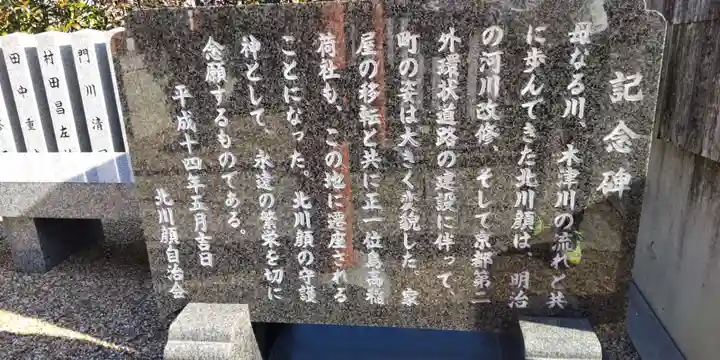 記念碑
母なる川、木津川の流れと共
に歩んできた北川顔は、明治
の河川改修、そして京都第二
外環状道路の建設に伴って、
町の姿は大きく変貌した 家
屋の移転と共に正一位島高稲
荷社も、この地に遷座される
ことになった。北川顔の守護
神として、永遠の繁栄を切に
念願するものである。
平成十四年五月吉日
北川顔自治会
門川清
村田昌左
田中重